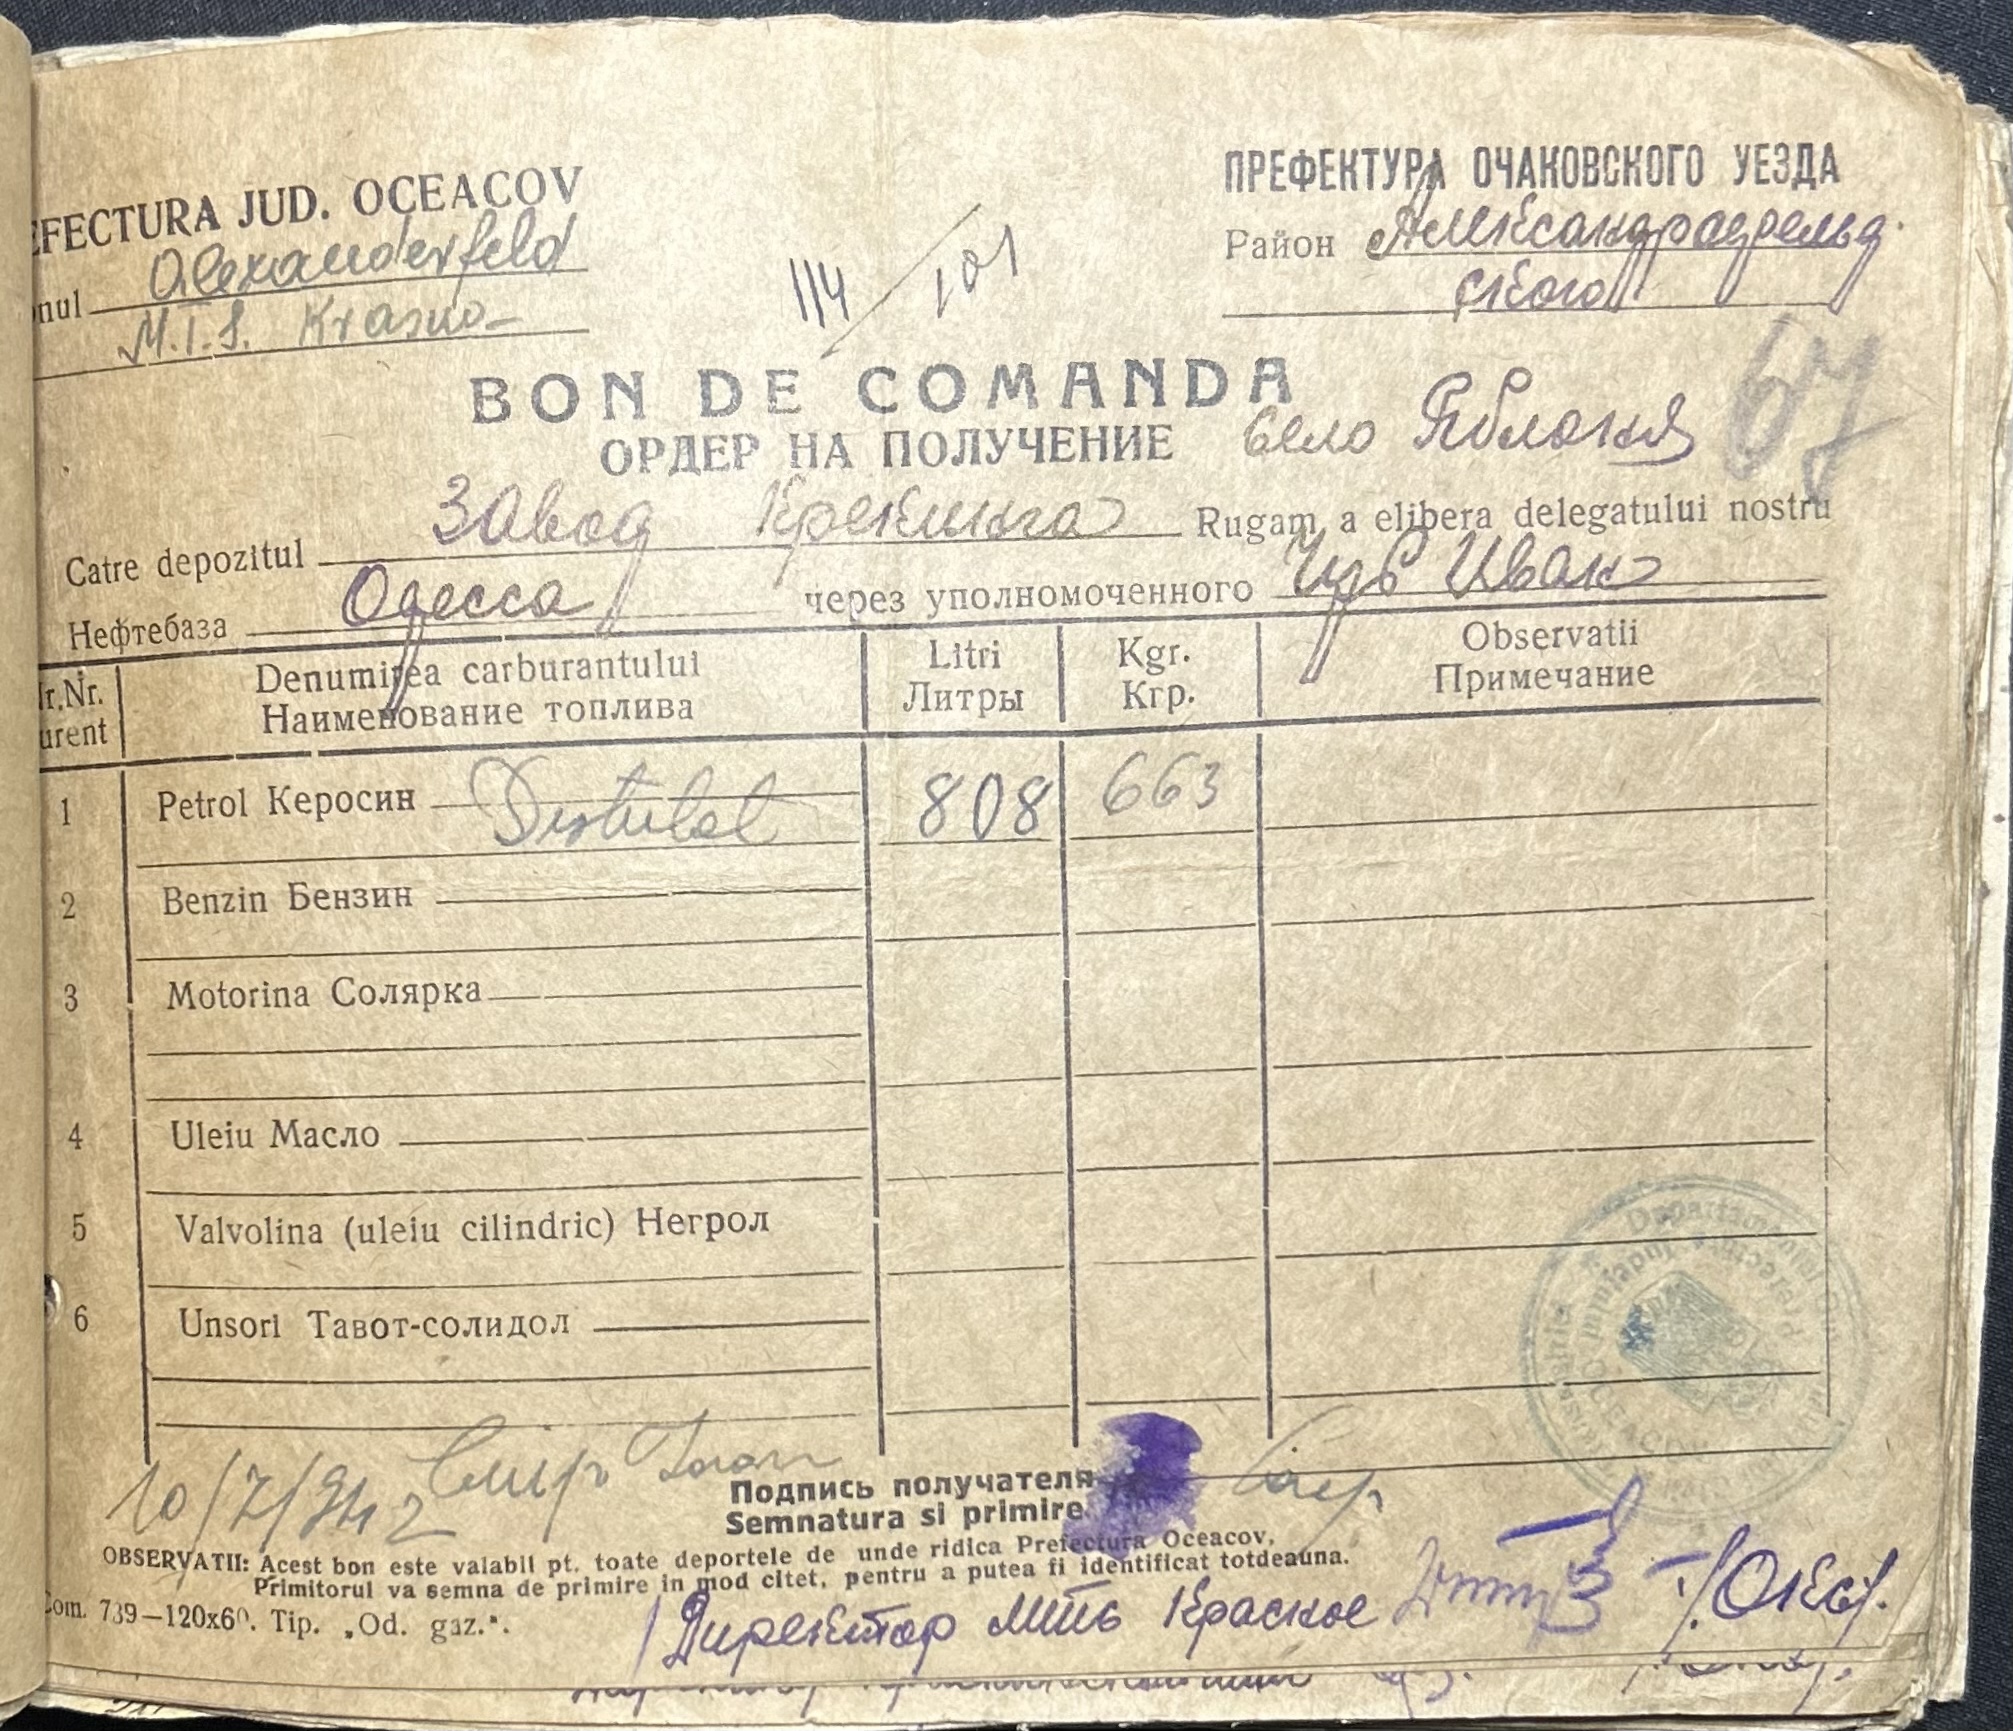 EFECTURA JUD. OCEACOV
onul Alexanderfeld
M.T.S. Krasno-
114/101
ПРЕФЕКТУРА ОЧАКОВСКОГО УЕЗДА
Район Александрофельд
ского
67
BON DE COMANDA
ОРДЕР НА ПОЛУЧЕНИЕ село Яблокя
Catre depozitul Завод Крекинга Rugam a elibera delegatului nostru
Нефтебаза Одесса через уполномоченного Иван
Nr. Denumirea carburantului Litri Kgr. Observatii
urent Наименование топлива Литры Кгр. Примечание
1 Petrol Керосин Distilat 808 663
2 Benzin Бензин
3 Motorina Солярка
4 Uleiu Масло
5 Valvolina (uleiu cilindric) Негрол
6 Unsori Тавот-солидол
10/7/942
Подпись получателя
Semnatura si primire
OBSERVATII: Acest bon este valabil pt. toate deportele de unde ridica Prefectura Oceacov,
Primitorul va semna de primire in mod citet, pentru a putea fi identificat totdeauna.
Com. 739—120x60. Tip. „Od. gaz.“.
Директор мтс Красное